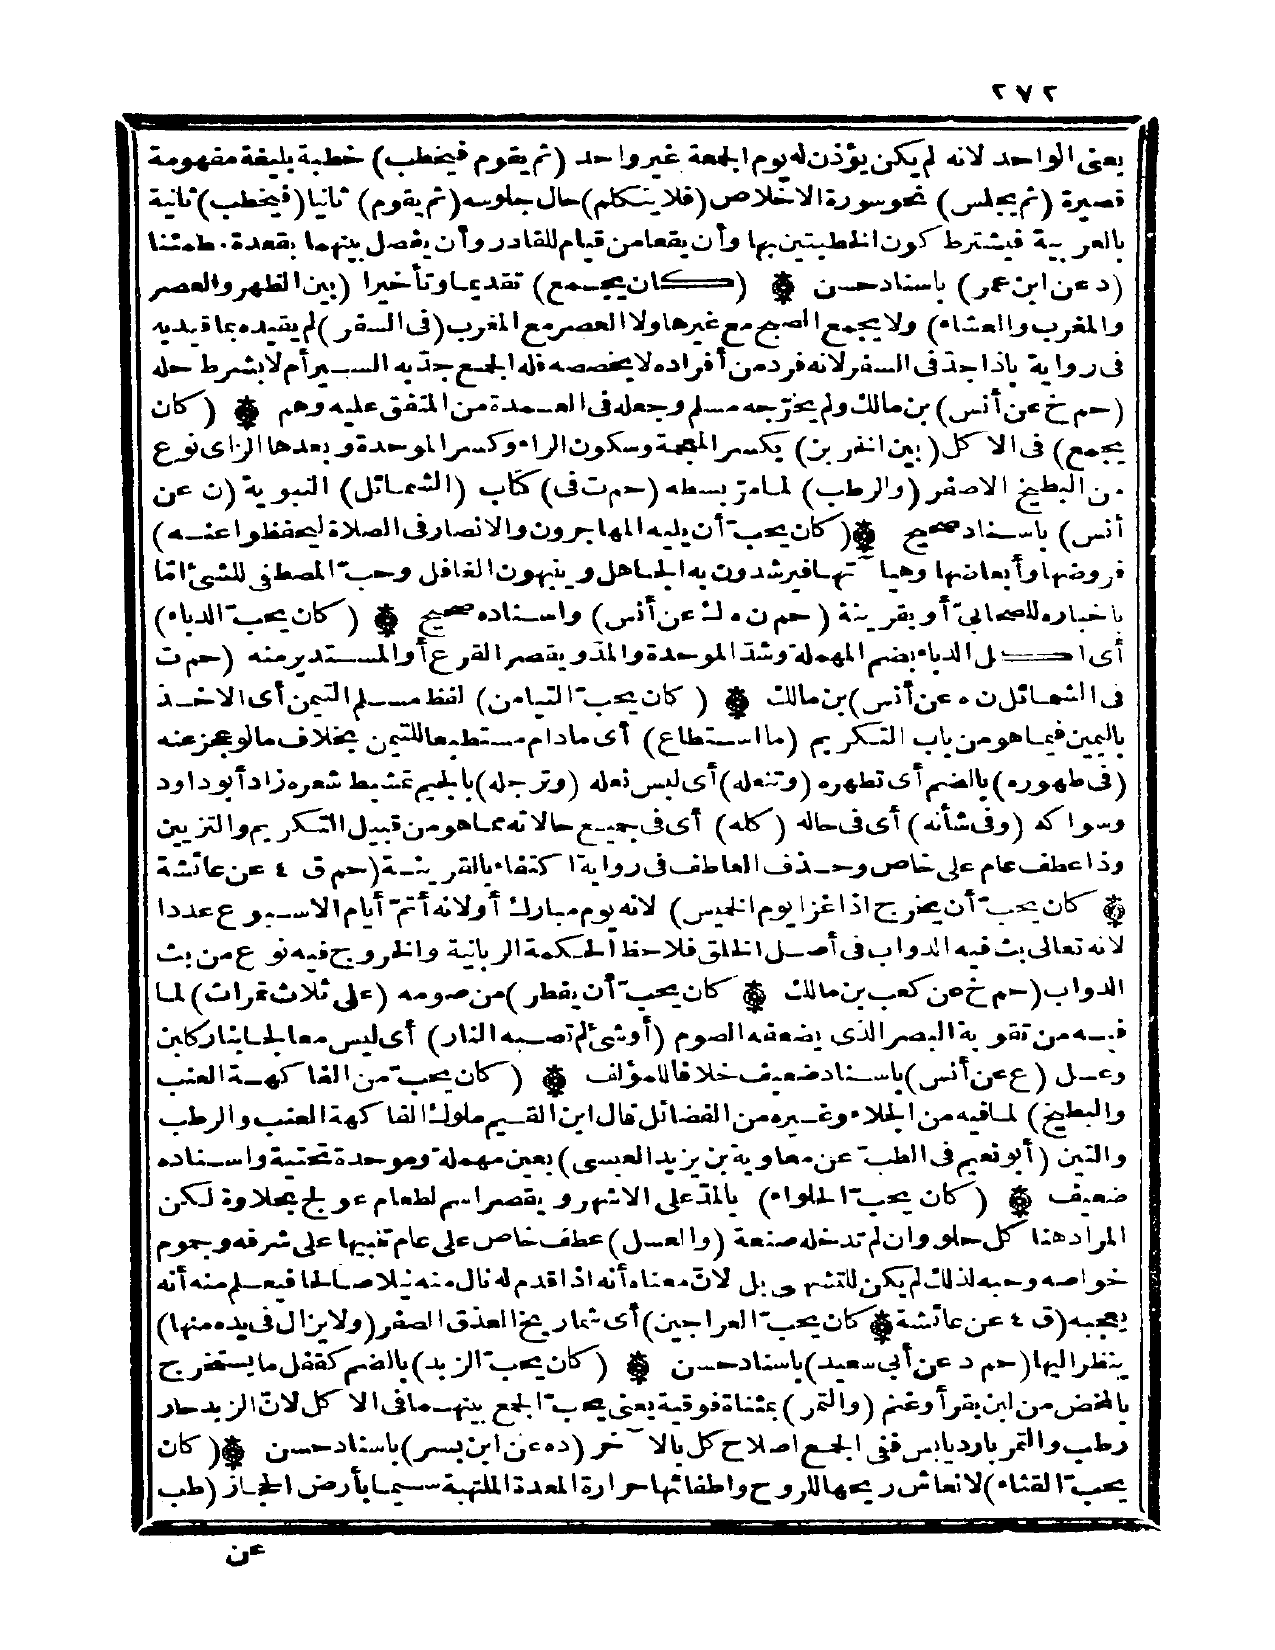 ٢٧٢
يعنى الواحد لانه لم يكن يؤذن له يوم الجمعة غير واحد (ثم يقوم فيخطب) خطبة بليغة مفهومة
قصيرة (ثم يجلس) نحو سورة الاخلاص (فلا يتكلم) حال جلوسه (ثم يقوم) ثانيا (فيخطب) ثانية
بالعربية فيشترط كون الخطبتين بها وأن يقعا من قيام للقادر وأن يفصل بينهما بقعدة مطمئنا
(د عن ابن عمر) باسناد حسن ۞ (كان يجمع) تقديما وتأخيرا (بين الظهر والعصر
والمغرب والعشاء) ولا يجمع الصبح مع غيرها ولا العصر مع المغرب (فى السفر) لم يقيده بما قيد به
فى رواية باذا جدّ فى السفر لانه فرد من أفراده لا يخصصه فله الجمع جدّ به السير أم لا بشرط حله
(حم خ عن أنس) بن مالك ولم يخرّجه مسلم وجعله فى العمدة من المتفق عليه وهم ۞ (كان
يجمع) فى الاكل (بين الخربز) بكسر المعجمة وسكون الراء وكسر الموحدة وبعدها الزاى نوع
من البطيخ الاصفر (والرطب) لما مرّ بسطه (حم ت فى) كتاب (الشمائل) النبوية (ن عن
أنس) باسناد صحيح ۞ (كان يحبّ أن يليه المهاجرون والانصار فى الصلاة ليحفظوا عنه)
فروضها وأبعاضها وهيآتها فيرشدون به الجاهل وينبهون الغافل وحبّ المصطفى للشئ امّا
باخباره للصحابىّ أو بقرينة (حم ن ه ك عن أنس) واسناده صحيح ۞ (كان يحبّ الدباء)
أى اكل الدباء بضم المهملة وشدّ الموحدة والمدّ ويقصر القرع أو المستدير منه (حم ت
فى الشمائل ن ه عن أنس) بن مالك ۞ (كان يحبّ التيامن) لفظ مسلم التيمن أى الاخذ
باليمين فيما هو من باب التكريم (ما استطاع) أى مادام مستطيعا للتيمن بخلاف ما لو عجز عنه
(فى طهوره) بالضم أى تطهره (وتنعله) أى لبس نعله (وترجله) بالجيم تمشيط شعره زاد أبو داود
وسواكه (وفى شأنه) أى فى حاله (كله) أى فى جميع حالاته مما هو من قبيل التكريم والتزيين
وذا عطف عام على خاص وحذف العاطف فى رواية اكتفاء بالقرينة (حم ق ٤ عن عائشة
۞ كان يحبّ أن يخرج اذا غزا يوم الخميس) لانه يوم مبارك أو لانه أتمّ أيام الاسبوع عددا
لانه تعالى بث فيه الدواب فى أصل الخلق فلاحظ الحكمة الربانية والخروج فيه نوع من بث
الدواب (حم خ عن كعب بن مالك ۞ كان يحبّ أن يفطر) من صومه (على ثلاث تمرات) لما
فيه من تقوية البصر الذى يضعفه الصوم (أو شئ لم تصبه النار) أى ليس معالجا بنار كلبن
وعسل (ع عن أنس) باسناد ضعيف خلافا للمؤلف ۞ (كان يحبّ من الفاكهة العنب
والبطيخ) لما فيه من الجلاء وغيره من الفضائل قال ابن القيم ملوك الفاكهة العنب والرطب
والتين (أبو نعيم فى الطبّ عن معاوية بن يزيد العبسى) بعين مهملة وموحدة تحتية واسناده
ضعيف ۞ (كان يحبّ الحلواء) بالمدّ على الاشهر ويقصر اسم لطعام عولج بحلاوة لكن
المراد هنا كل حلو وان لم تدخله صنعة (والعسل) عطف خاص على عام تنبيها على شرفه وعموم
خواصه وحبه لذلك لم يكن للتشهى بل لانّ معناه أنه اذا قدم له نال منه نيلا صالحا فيعلم منه أنه
يعجبه (ق ٤ عن عائشة ۞ كان يحبّ العراجين) أى شماريخ العذق الصفر (ولا يزال فى يده منها)
ينظر اليها (حم د عن أبى سعيد) باسناد حسن ۞ (كان يحبّ الزبد) بالضم كقفل ما يستخرج
بالمخض من لبن بقر أو غنم (والتمر) بمثناة فوقية يعنى يحبّ الجمع بينهما فى الاكل لانّ الزبد حار
رطب والتمر بارد يابس ففى الجمع اصلاح كل بالآخر (د ه عن ابن بسر) باسناد حسن ۞ (كان
يحبّ القثاء) لانعاش ريحها للروح واطفائها حرارة المعدة الملتهبة سيما بأرض الحجاز (طب
عن